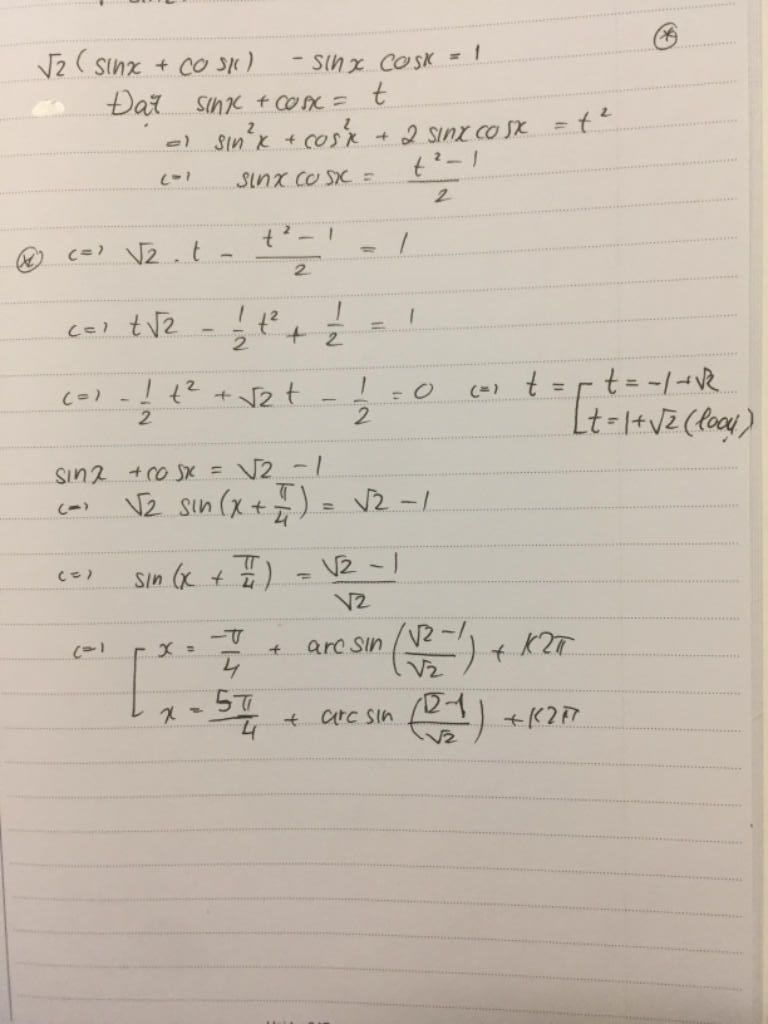 √2 ( sinx + cosx ) - sinx cosx = 1 (*)
Đặt sinx + cosx = t
=> sin²x + cos²x + 2 sinx cosx = t²
<=> sinx cosx = (t² - 1)/2
(*) <=> √2 . t - (t² - 1)/2 = 1
<=> t√2 - 1/2 t² + 1/2 = 1
<=> - 1/2 t² + √2 t - 1/2 = 0 <=> t = [ t = -1 + √2
t = 1 + √2 (loại)
sinx + cosx = √2 - 1
<=> √2 sin(x + π/4) = √2 - 1
<=> sin (x + π/4) = (√2 - 1)/√2
<=> [ x = -π/4 + arcsin ((√2 - 1)/√2) + K2π
x = 5π/4 + arcsin ((√2 - 1)/√2) + K2π